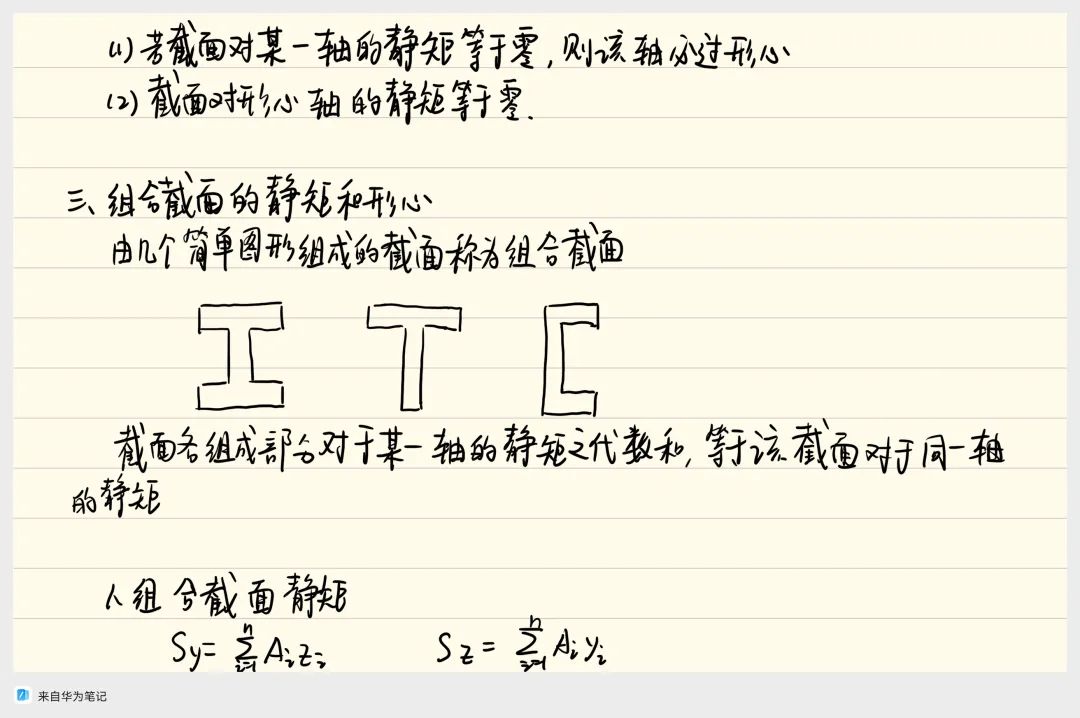 (1) 若截面对某一轴的静矩等于零,则该轴必过形心
(2) 截面对形心轴的静矩等于零.
三、组合截面的静矩和形心
由几个简单图形组成的截面称为组合截面
截面各组成部分对于某一轴的静矩之代数和,等于该截面对于同一轴
的静矩
1、组合截面静矩
Sy = ∑ⁿᵢ₌₁ Aᵢzᵢ Sz = ∑ⁿᵢ₌₁ Aᵢyᵢ
来自华为笔记